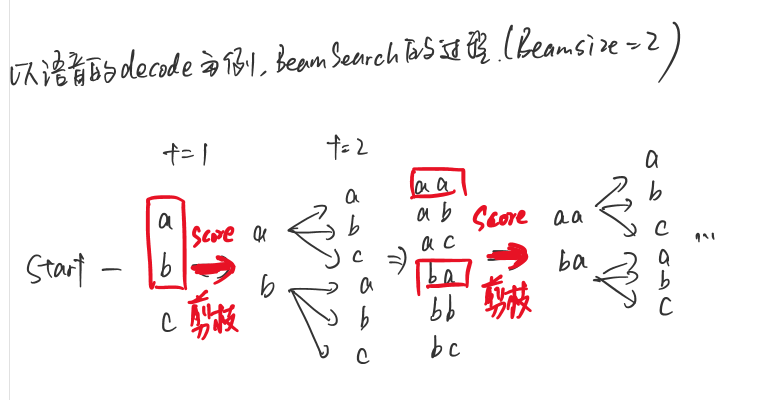 以语音的decode为例,BeamSearch的过程.(Beamsize=2)
t=1
t=2
Start - a b c
score
剪枝
a
a
b
c
b
a
b
c
⇒
aa
ab
ac
ba
bb
bc
score
剪枝
aa
a
b
c
ba
a
b
c
...